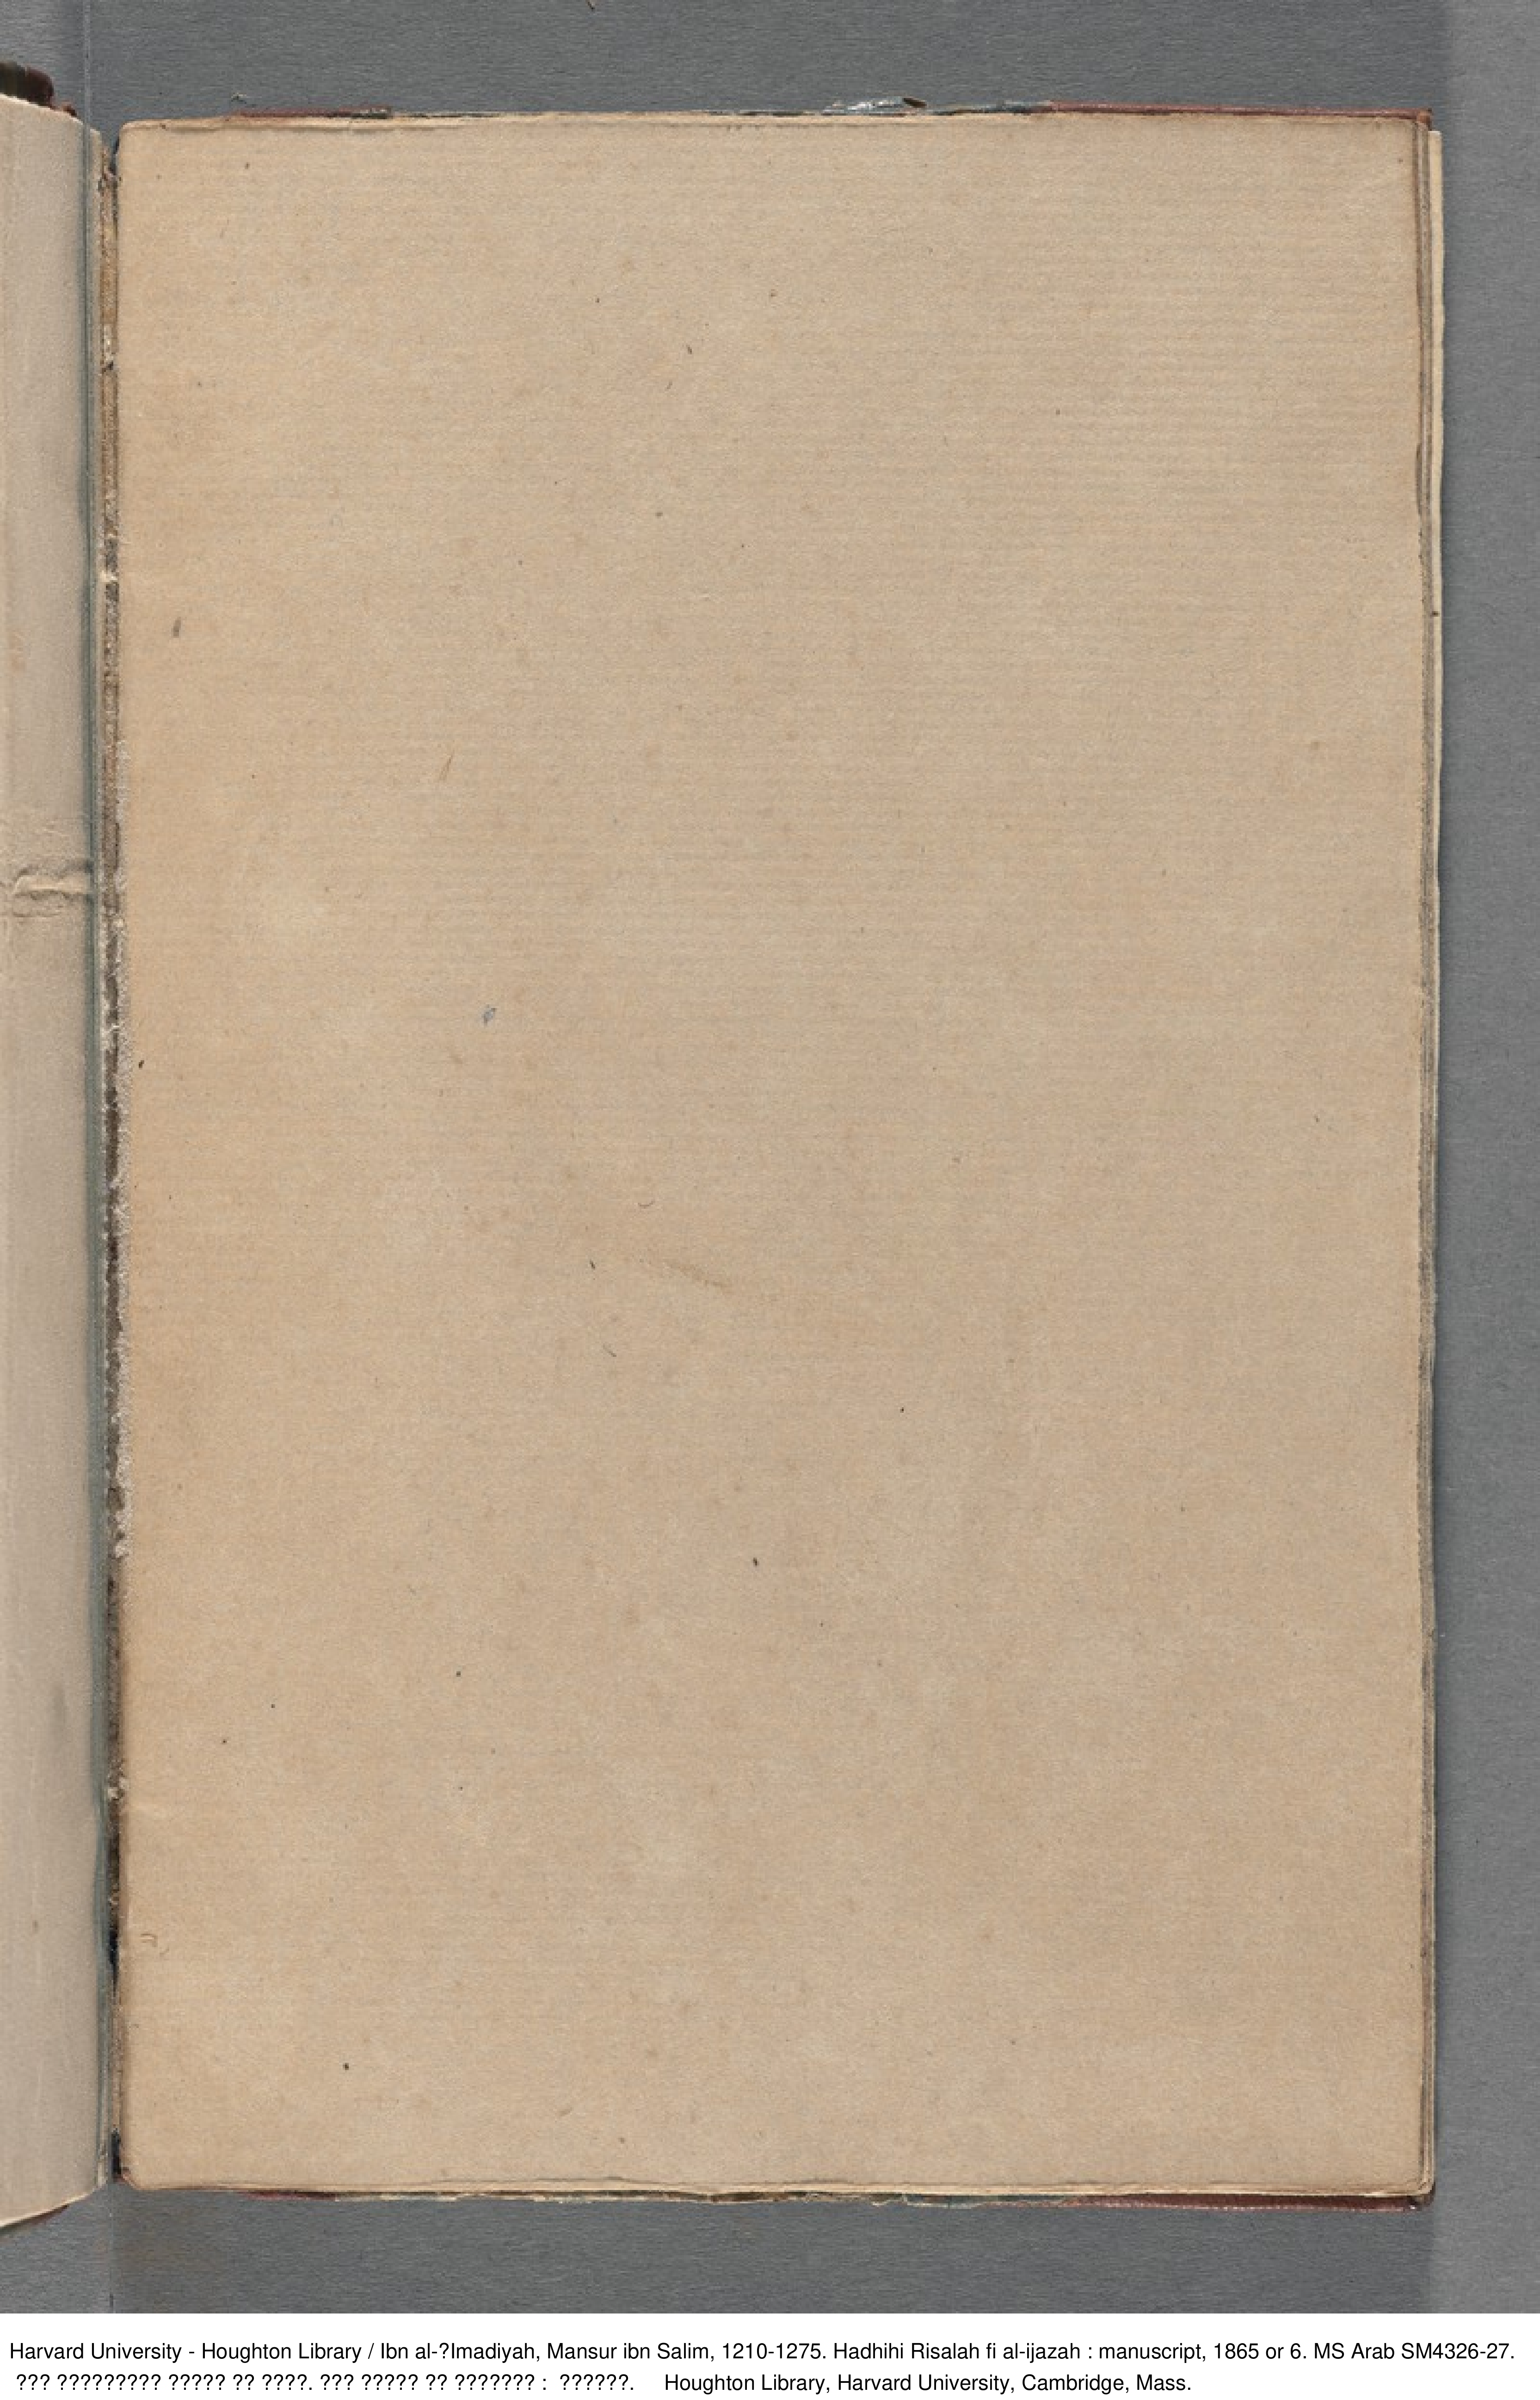 Harvard University - Houghton Library / Ibn al-?Imadiyah, Mansur ibn Salim, 1210-1275. Hadhihi Risalah fi al-ijazah : manuscript, 1865 or 6. MS Arab SM4326-27.
??? ????????? ????? ?? ????. ??? ????? ?? ??????? : ??????. Houghton Library, Harvard University, Cambridge, Mass.